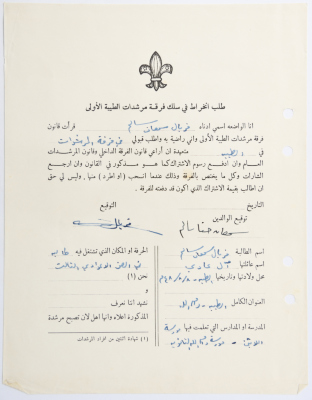 طلب انخراط في سلك فرقة مرشدات الطيبة الأولى
انا الواضعه اسمي ادناه فريال سمعان سالم قرأت قانون
فرقة مرشدات الطيبة الأولى واني راضية به واطلب قبولي في فرقة المرشدات
في الطيبه متعهدة ان أراعي قانون الفرقة الداخلي وقانون المرشدات
العام وان ادفع رسوم الاشتراك كما هو مذكور في القانون وان ارجع
الشارات وكل ما يختص بالفرقة وذلك عندما انسحب (أو اطرد) منها، وليس لي حق
ان اطالب بقيمة الاشتراك الذي اكون قد دفعته للفرقة.
التاريخ
التوقيع
توقيع الوالدين
سمعان حنا سالم
فريال
اسم الطالبة فريال سمعان سالم
اسم عائلتها
محل ولادتها وتاريخها الطيبه
العنوان الكامل الطيبه - رام الله
المدرسة او المدارس التي تعلمت فيها مدرسة
الحرفة او المكان الذي تشتغل فيه طالبه
في الصف الاعدادي الثالث
نحن (١)
و
نشهد اننا نعرف
المذكورة اعلاه وانها اهل لان تصبح مرشدة
(١) شهادة اثنتين من افراد المرشدات